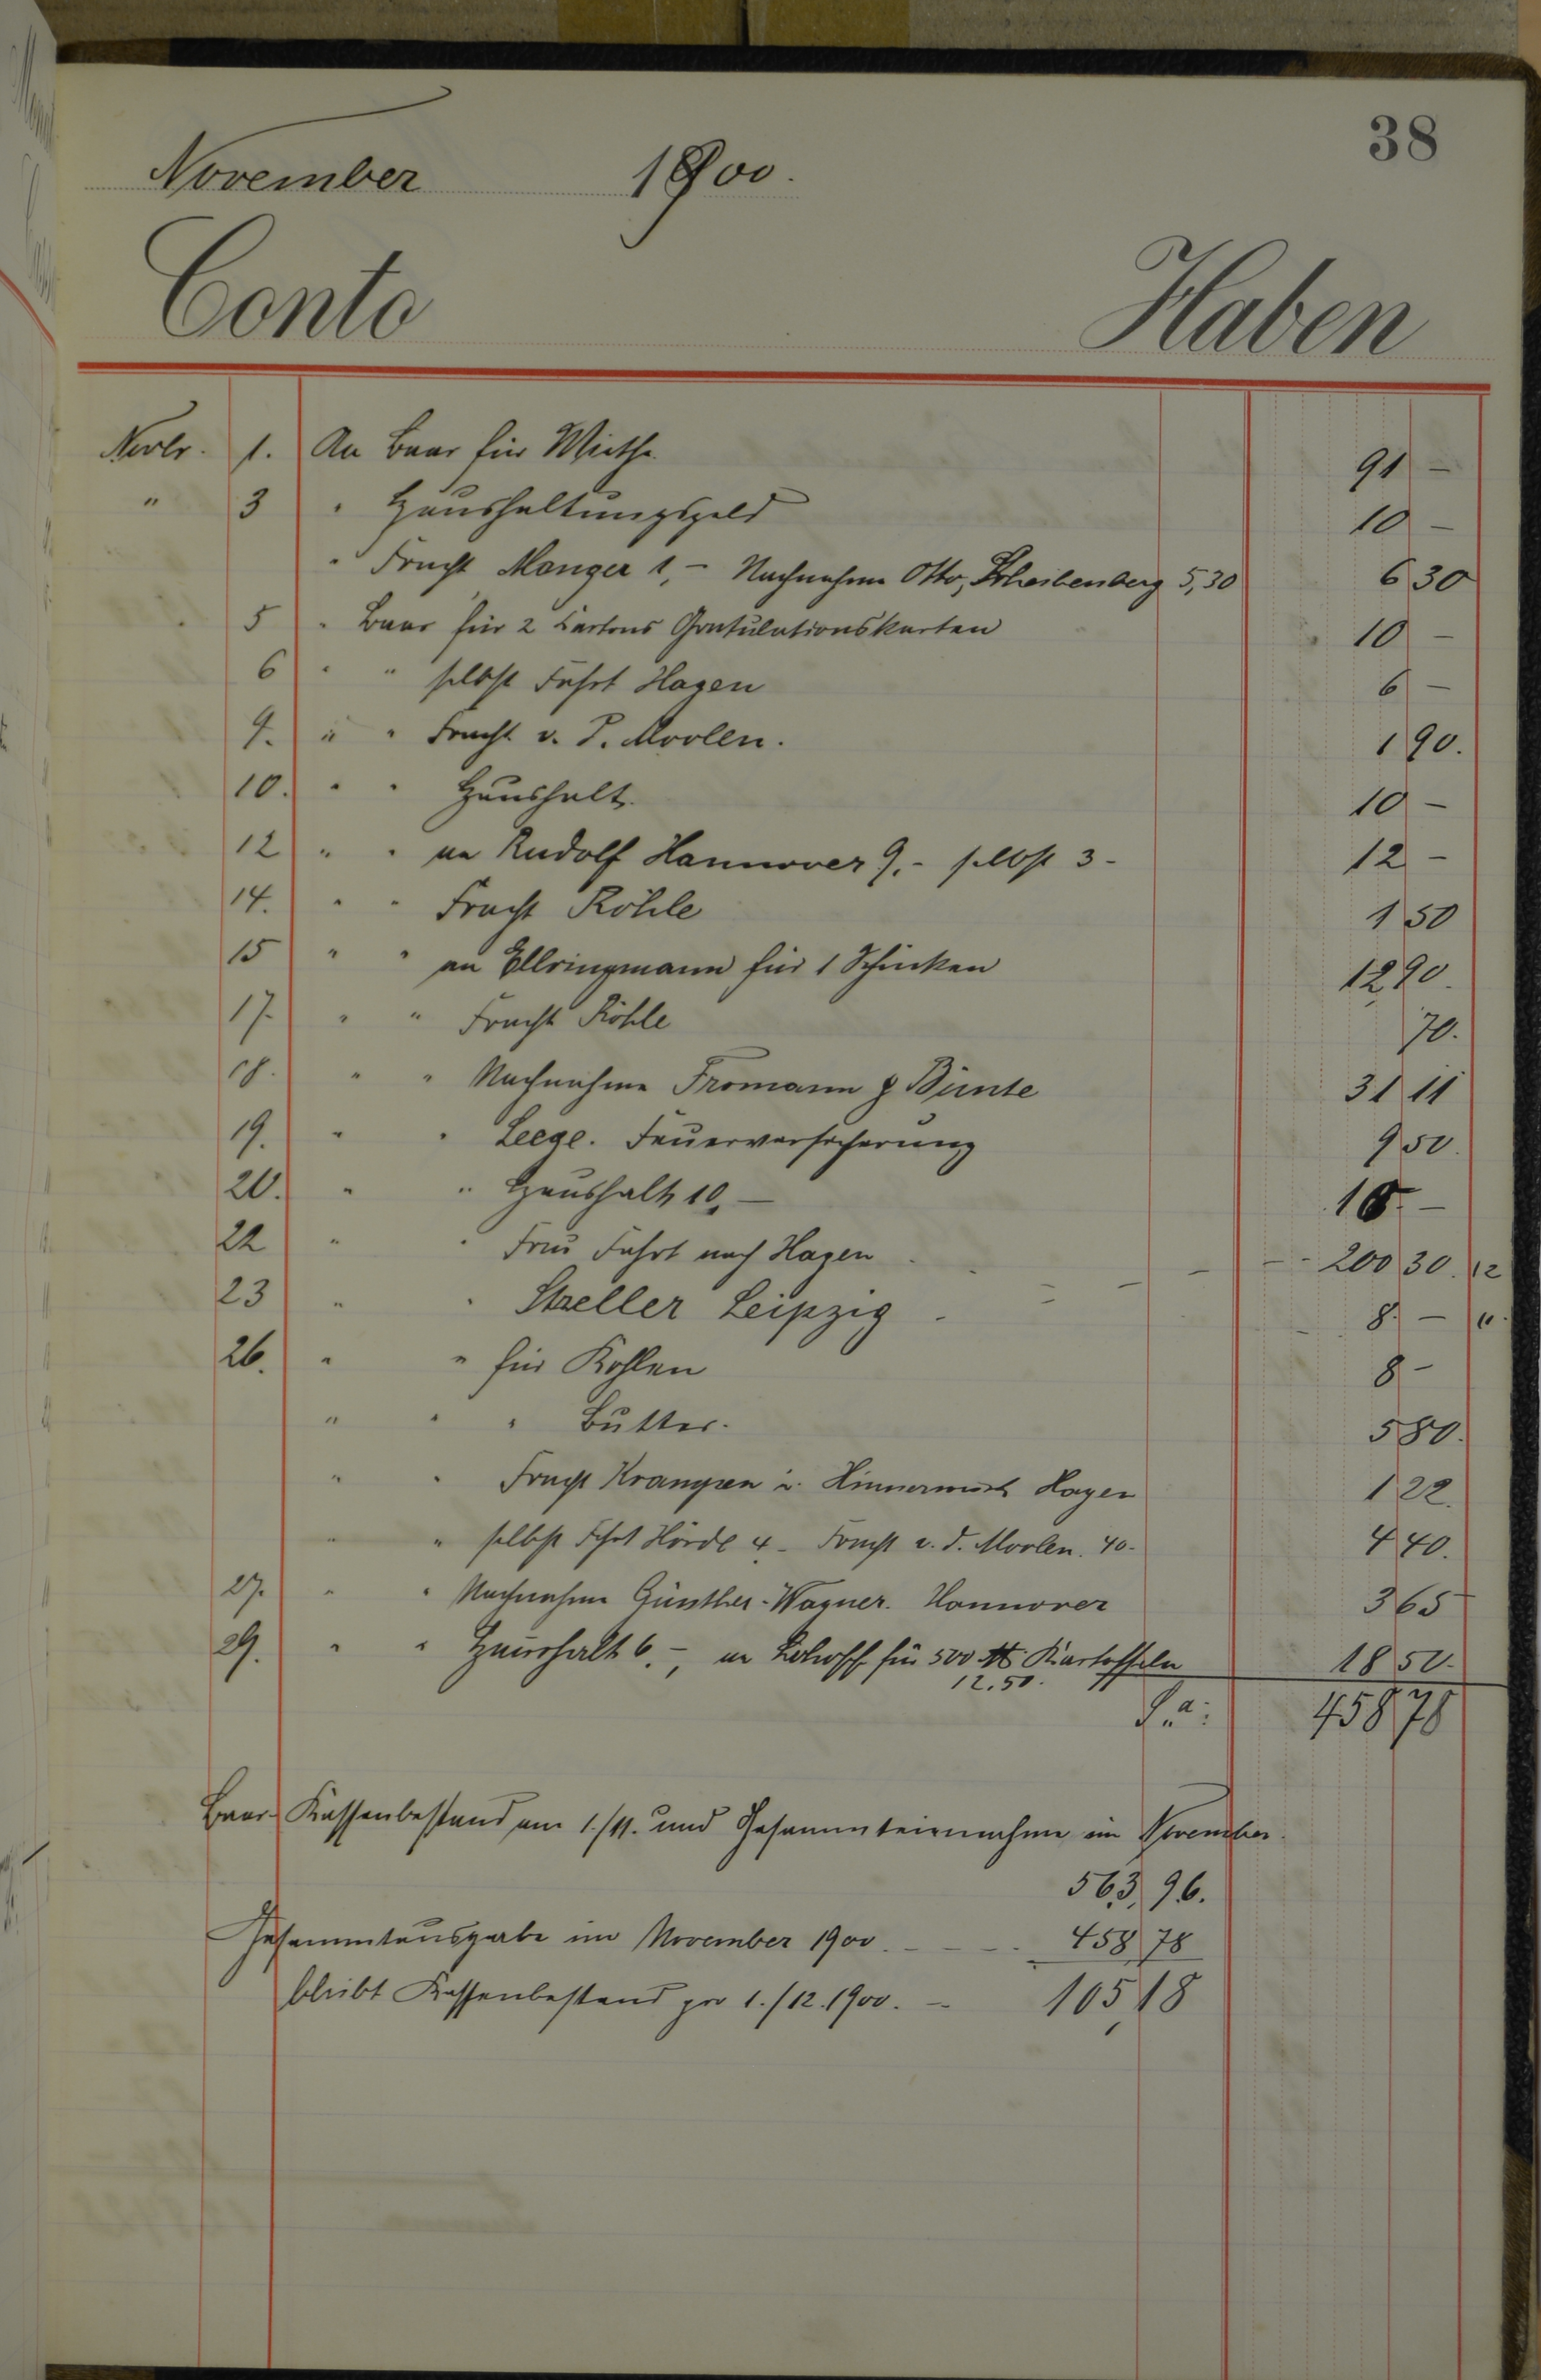 38
November 1900.
Conto Haben
Novbr. 1. An Baar für Miethe 91 –
" 3 " Haushaltungsgeld 10 –
" Fracht Monger 1,– Nachnahme Otto, Scheibenberg 5,30 6 30
" 5 " Baar für 2 Cartons Gratulationskarten 10 –
6 " " selbst Fahrt Hagen 6 –
9. " " Fracht v. d. Moolen. 1 90.
10. " " Haushalt. 10 –
12 " " an Rudolf Hannover 9.– selbst 3 – 12 –
14. " " Fracht Röhle 1 50
15 " " an Ellringmann für 1 Schinken 12 90.
17. " " Fracht Röhle 70.
18. " " Nachnahme Fromann & Bünte 31 11
19. " " Leege. Feuerversicherung 9 50.
20. " " Haushalt 10,– 10. –
22 " " Frau Fahrt nach Hagen 200 30. 12
23 " " Stzeller Leipzig 8. – 11.
26. " " für Kohlen 8 –
" " " Butter. 5 80.
" " Fracht u. Hagen 1 22.
" " selbst Fahrt Hörde 4.– Fracht v. d. Moolen. 40.– 4 40.
27. " " Nachnahme Günther-Wagner. Hannover 3 65
29. " " Haushalt 6.–, an für 500 ℔ Kartoffeln 18 50.
12.50.
S.a: 458 78
Baar-Kassenbestand am 1./11. und Gesammteinnahme im November.
563, 96.
Gesammtausgabe im November 1900. – – – 458 78
bleibt Kassenbestand per 1./12. 1900. – 105,18